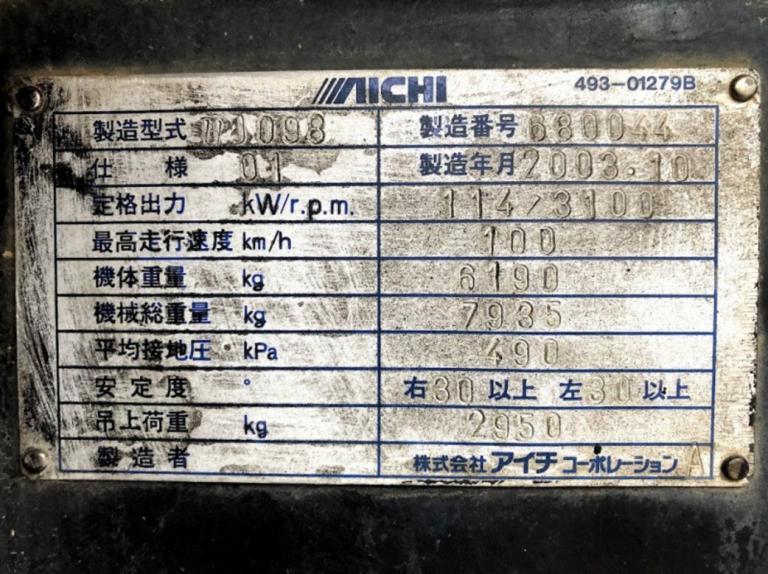 AICHI 493-01279B
製造型式 D1098 製造番号 680044
仕様 01 製造年月 2003.10
定格出力 kW/r.p.m. 114/3100
最高走行速度 km/h 100
機体重量 kg 6190
機械総重量 kg 7935
平均接地圧 kPa 490
安定度 ° 右30以上 左30以上
吊上荷重 kg 2950
製造者 株式会社アイチコーポレーション A